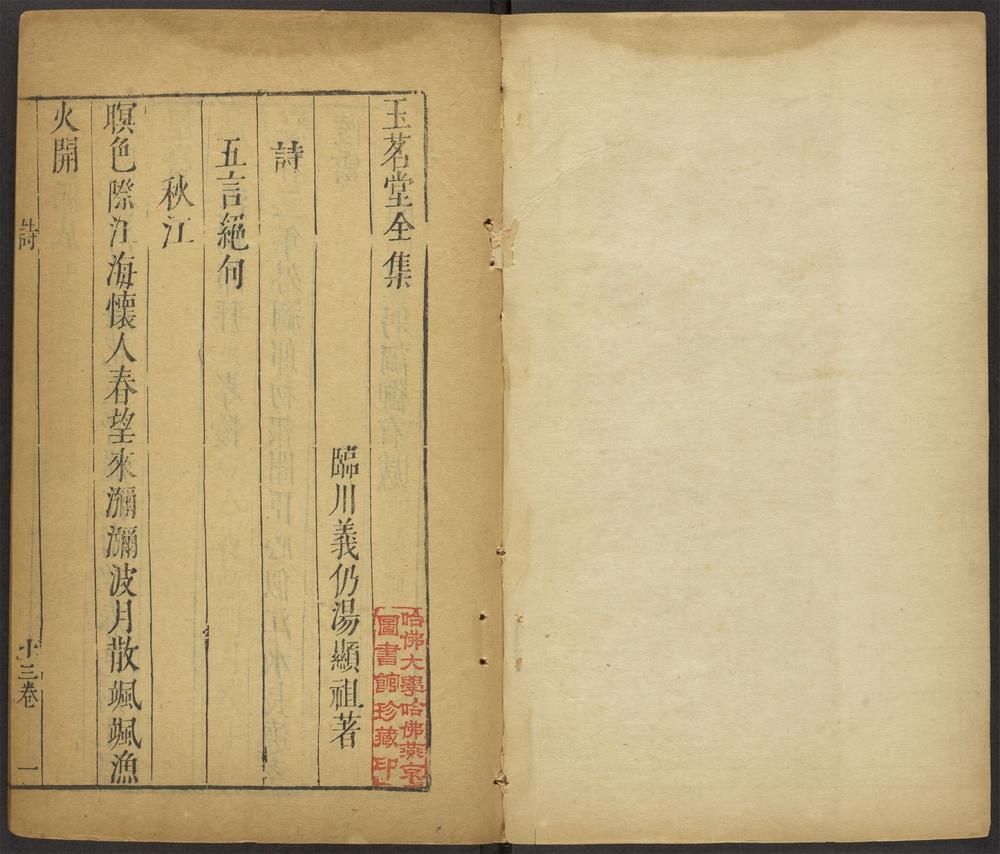 玉茗堂全集
臨川義仍湯顯祖著
詩
五言絕句
秋江
暝色際江海懷人春望來瀰瀰波月散颯颯漁
火開
詩
十三卷
一
哈佛大學哈佛燕京
圖書館珍藏印